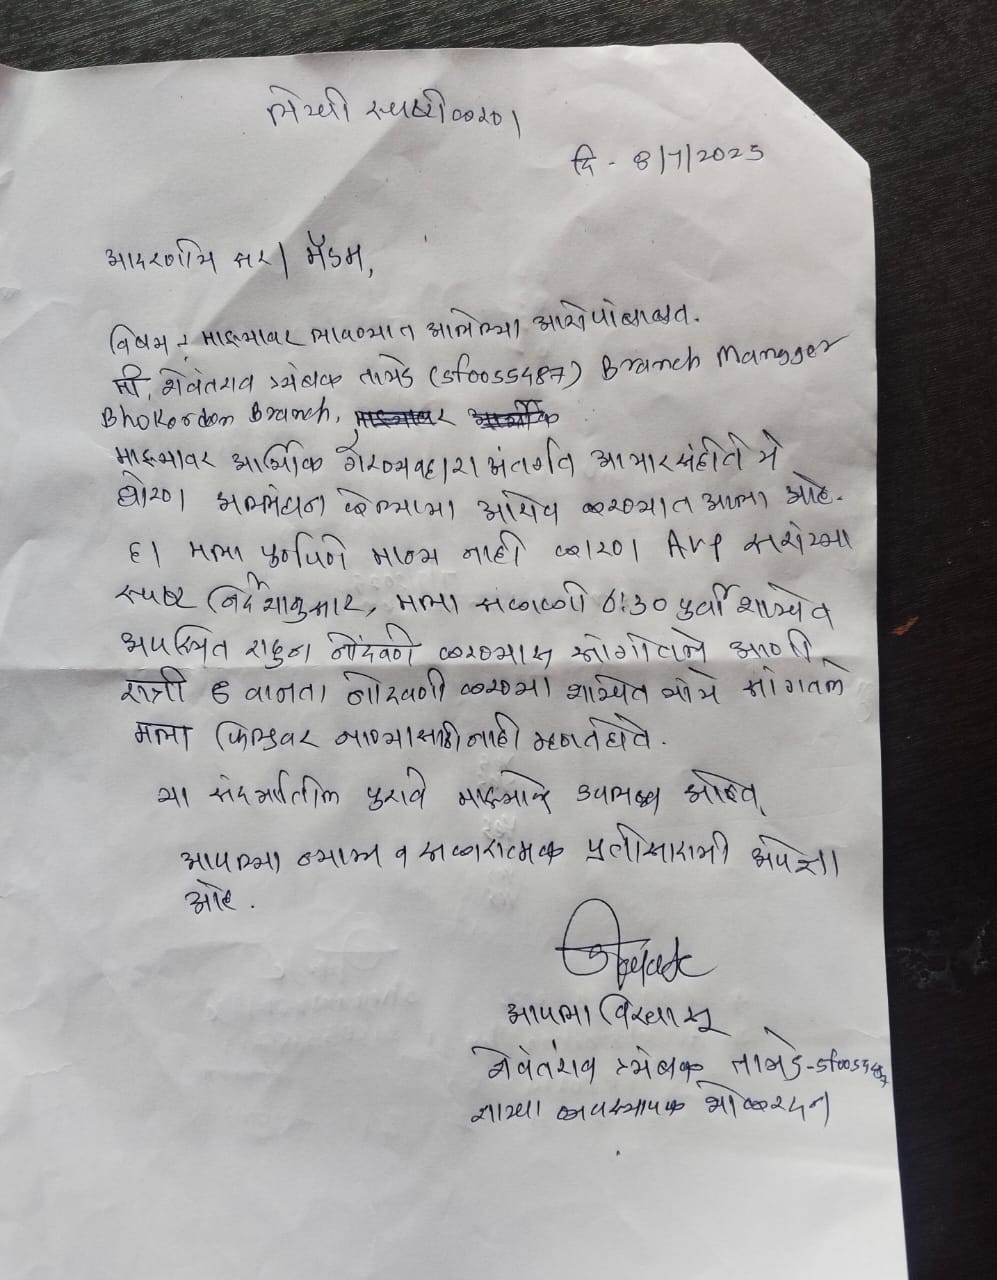 लेखी स्पष्टीकरण
दि - 8/7/2025
आदरणीय सर / मॅडम,
विषय : माझ्यावर लावण्यात आलेल्या आरोपांबाबत.
मी, शेवंतराव त्र्यंबक तायडे (sf0055487) Branch Mangger
Bhokardan Branch,
माझ्यावर आर्थिक गैरव्यवहारा अंतर्गत आचारसंहितेचे
धोरण उल्लंघन केल्याचा आरोप करण्यात आला आहे.
हा मला पूर्णपणे मान्य नाही कारण Avp सरांच्या
स्पष्ट निर्देशानुसार, मला सकाळी 6:30 पुर्वी शाखेत
उपस्थित राहून नोंदणी करण्यास सांगितले आणी
रात्री 8 वाजता नोंदणी करण्या शाखेत सांगितले
मला फिल्डवर जाण्यासाठी नाही म्हणत होते.
या संदर्भातील पुरावे माझ्याकडे उपलब्ध आहेत,
आपल्या न्याय्य व सकारात्मक प्रतीसादाची अपेक्षा
आहे.
आपला विश्वासू
शेवंतराव त्र्यंबक तायडे - sf0055487
शाखा व्यवस्थापक भोकरदन